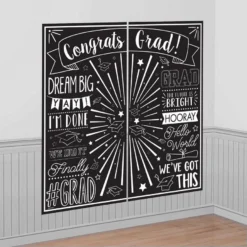 Congrats Grad!
DREAM BIG
YAY!
I'M DONE
Finally
#GRAD
GRAD
THE FUTURE IS
BRIGHT!
HOORAY
Hello
World
WE'VE GOT
THIS